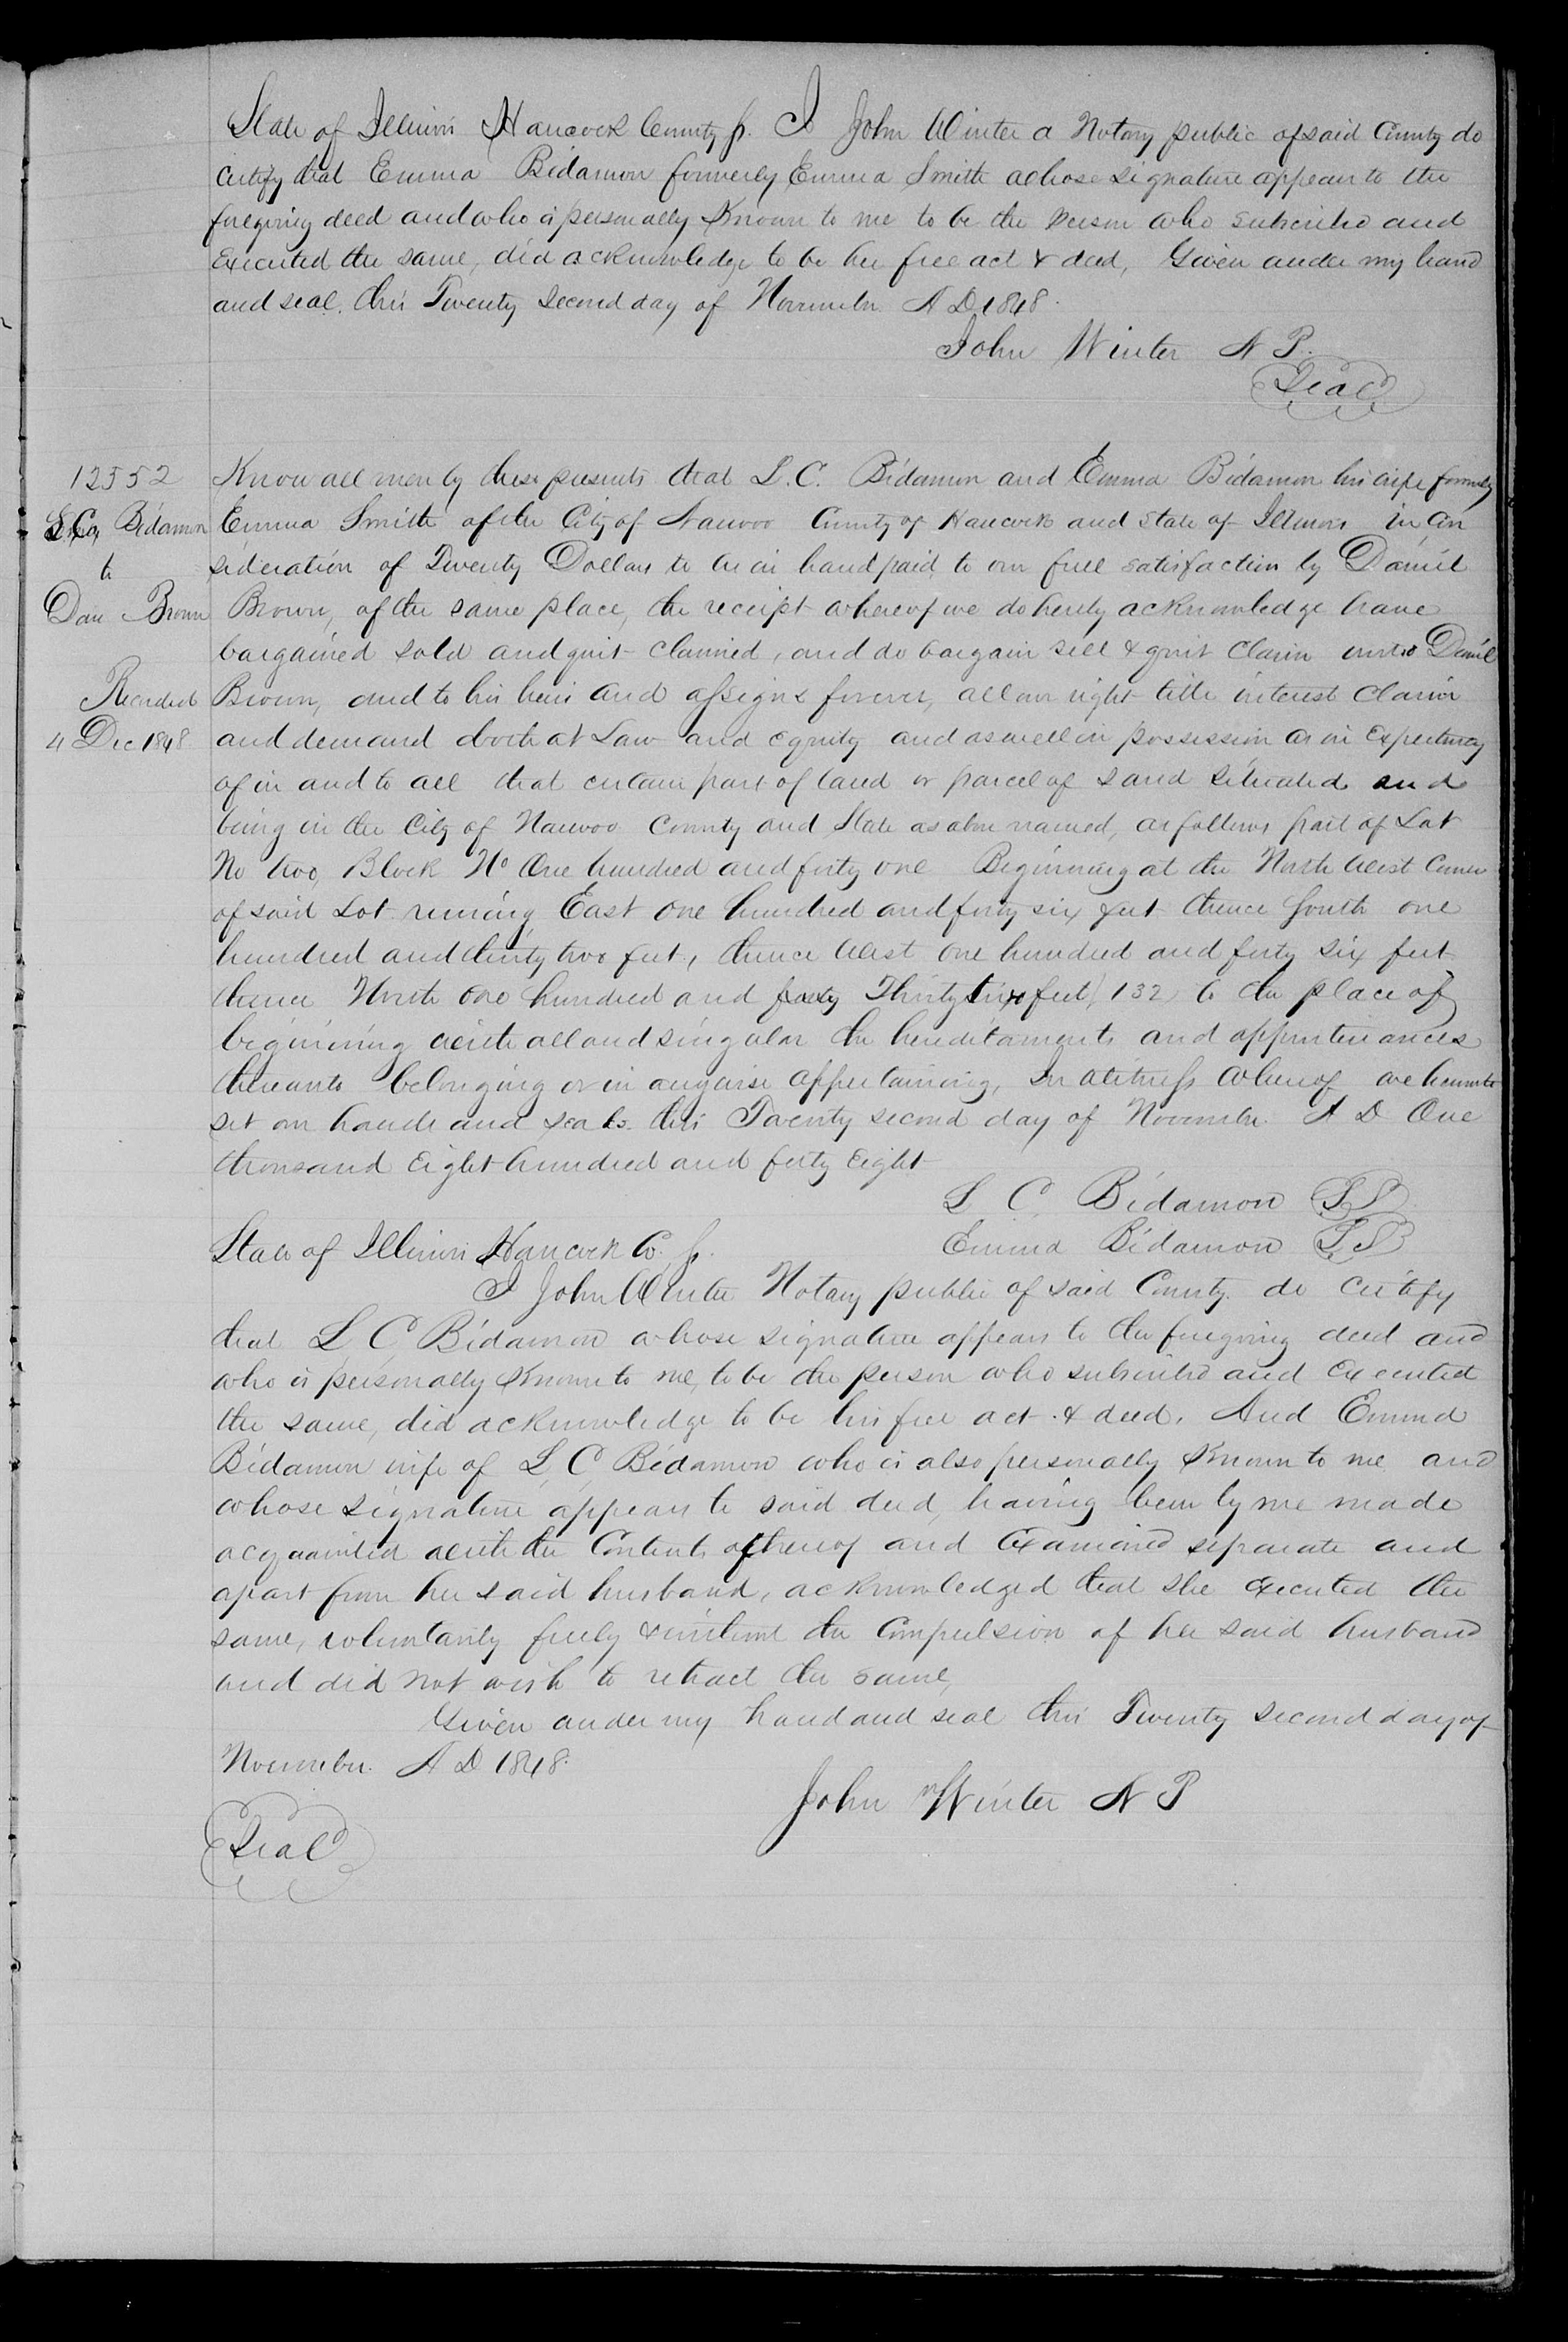 State of Illinois Hancock County ss. I John Winter a Notary public of said County do
certify that Emma Bidamon formerly Emma Smith whose signature appears to the
foregoing deed and who is personally Known to me to be the person who subscribed and
Executed the same, did acknowledge to be her free act & deed, Given under my hand
and seal. this Twenty Second day of November A D 1848.
John Winter N P.
Seal
12552
L. C. Bidamon
to
Dan Brown
Recorded
4 Dec 1848
Know all men by these presents that L. C. Bidamon and Emma Bidamon his wife formerly
Emma Smith of the City of Nauvoo County of Hancock and State of Illinois in Con
sideration of Twenty Dollars to us in hand paid, to our full satisfaction by Daniel
Brown, of the same place, the receipt whereof we do hereby acknowledge have
bargained sold and quit claimed, and do bargain sell & quit Claim unto Daniel
Brown, and to his heirs and assigns forever, all our right title interest Claim
and demand both at Law and equity and as well in possession as in Expectancy
of in and to all that certain part of land or parcel of land situated and
being in the City of Nauvoo County and State as above named, as follows part of Lot
No two, Block No One hundred and forty one Beginning at the North West Corner
of said Lot runing East one hundred and forty six feet thence South one
hundred and thirty two feet, thence West one hundred and forty six feet
thence North one hundred and forty Thirty two feet, 132, to the place of
beginning with all and singular the hereditaments and appurtenances
thereunto belonging or in anywise appertaining, In Witness Whereof we hereunto
set our hands and seals this Twenty second day of November. A D One
thousand Eight hundred and forty Eight
L C Bidamon LS
Emma Bidamon LS
State of Illinois Hancock Co. ss.
I John Winter Notary public of said County. do certify
that L C Bidamon whose signature appears to the foregoing deed and
who is personally Known to me, to be the person who subscribed and Executed
the same, did acknowledge to be his free act & deed. And Emma
Bidamon wife of L, C, Bidamon who is also personally Known to me and
whose signature appears to said deed, having been by me made
acquainted with the Contents of thereof and Examined separate and
apart from her said husband, acknowledged that she executed the
same, voluntarily freely & without the Compulsion of her said husband
and did not wish to retract the same,
Given under my hand and seal this Twenty second day of
November. A D 1848.
John Winter N P
Seal